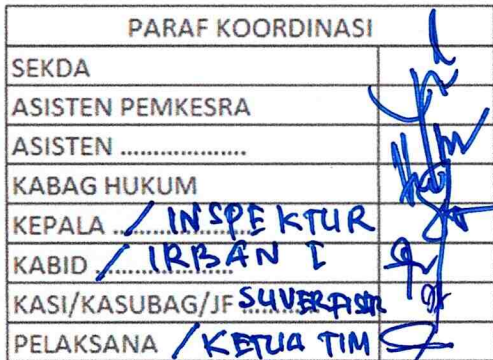 PARAF KOORDINASI
SEKDA
ASISTEN PEMKESRA
ASISTEN ...................
KABAG HUKUM
KEPALA ........ / INSPEKTUR
KABID ........ / IRBAN I
KASI/KASUBAG/JF SUVERFISR
PELAKSANA / KETUA TIM